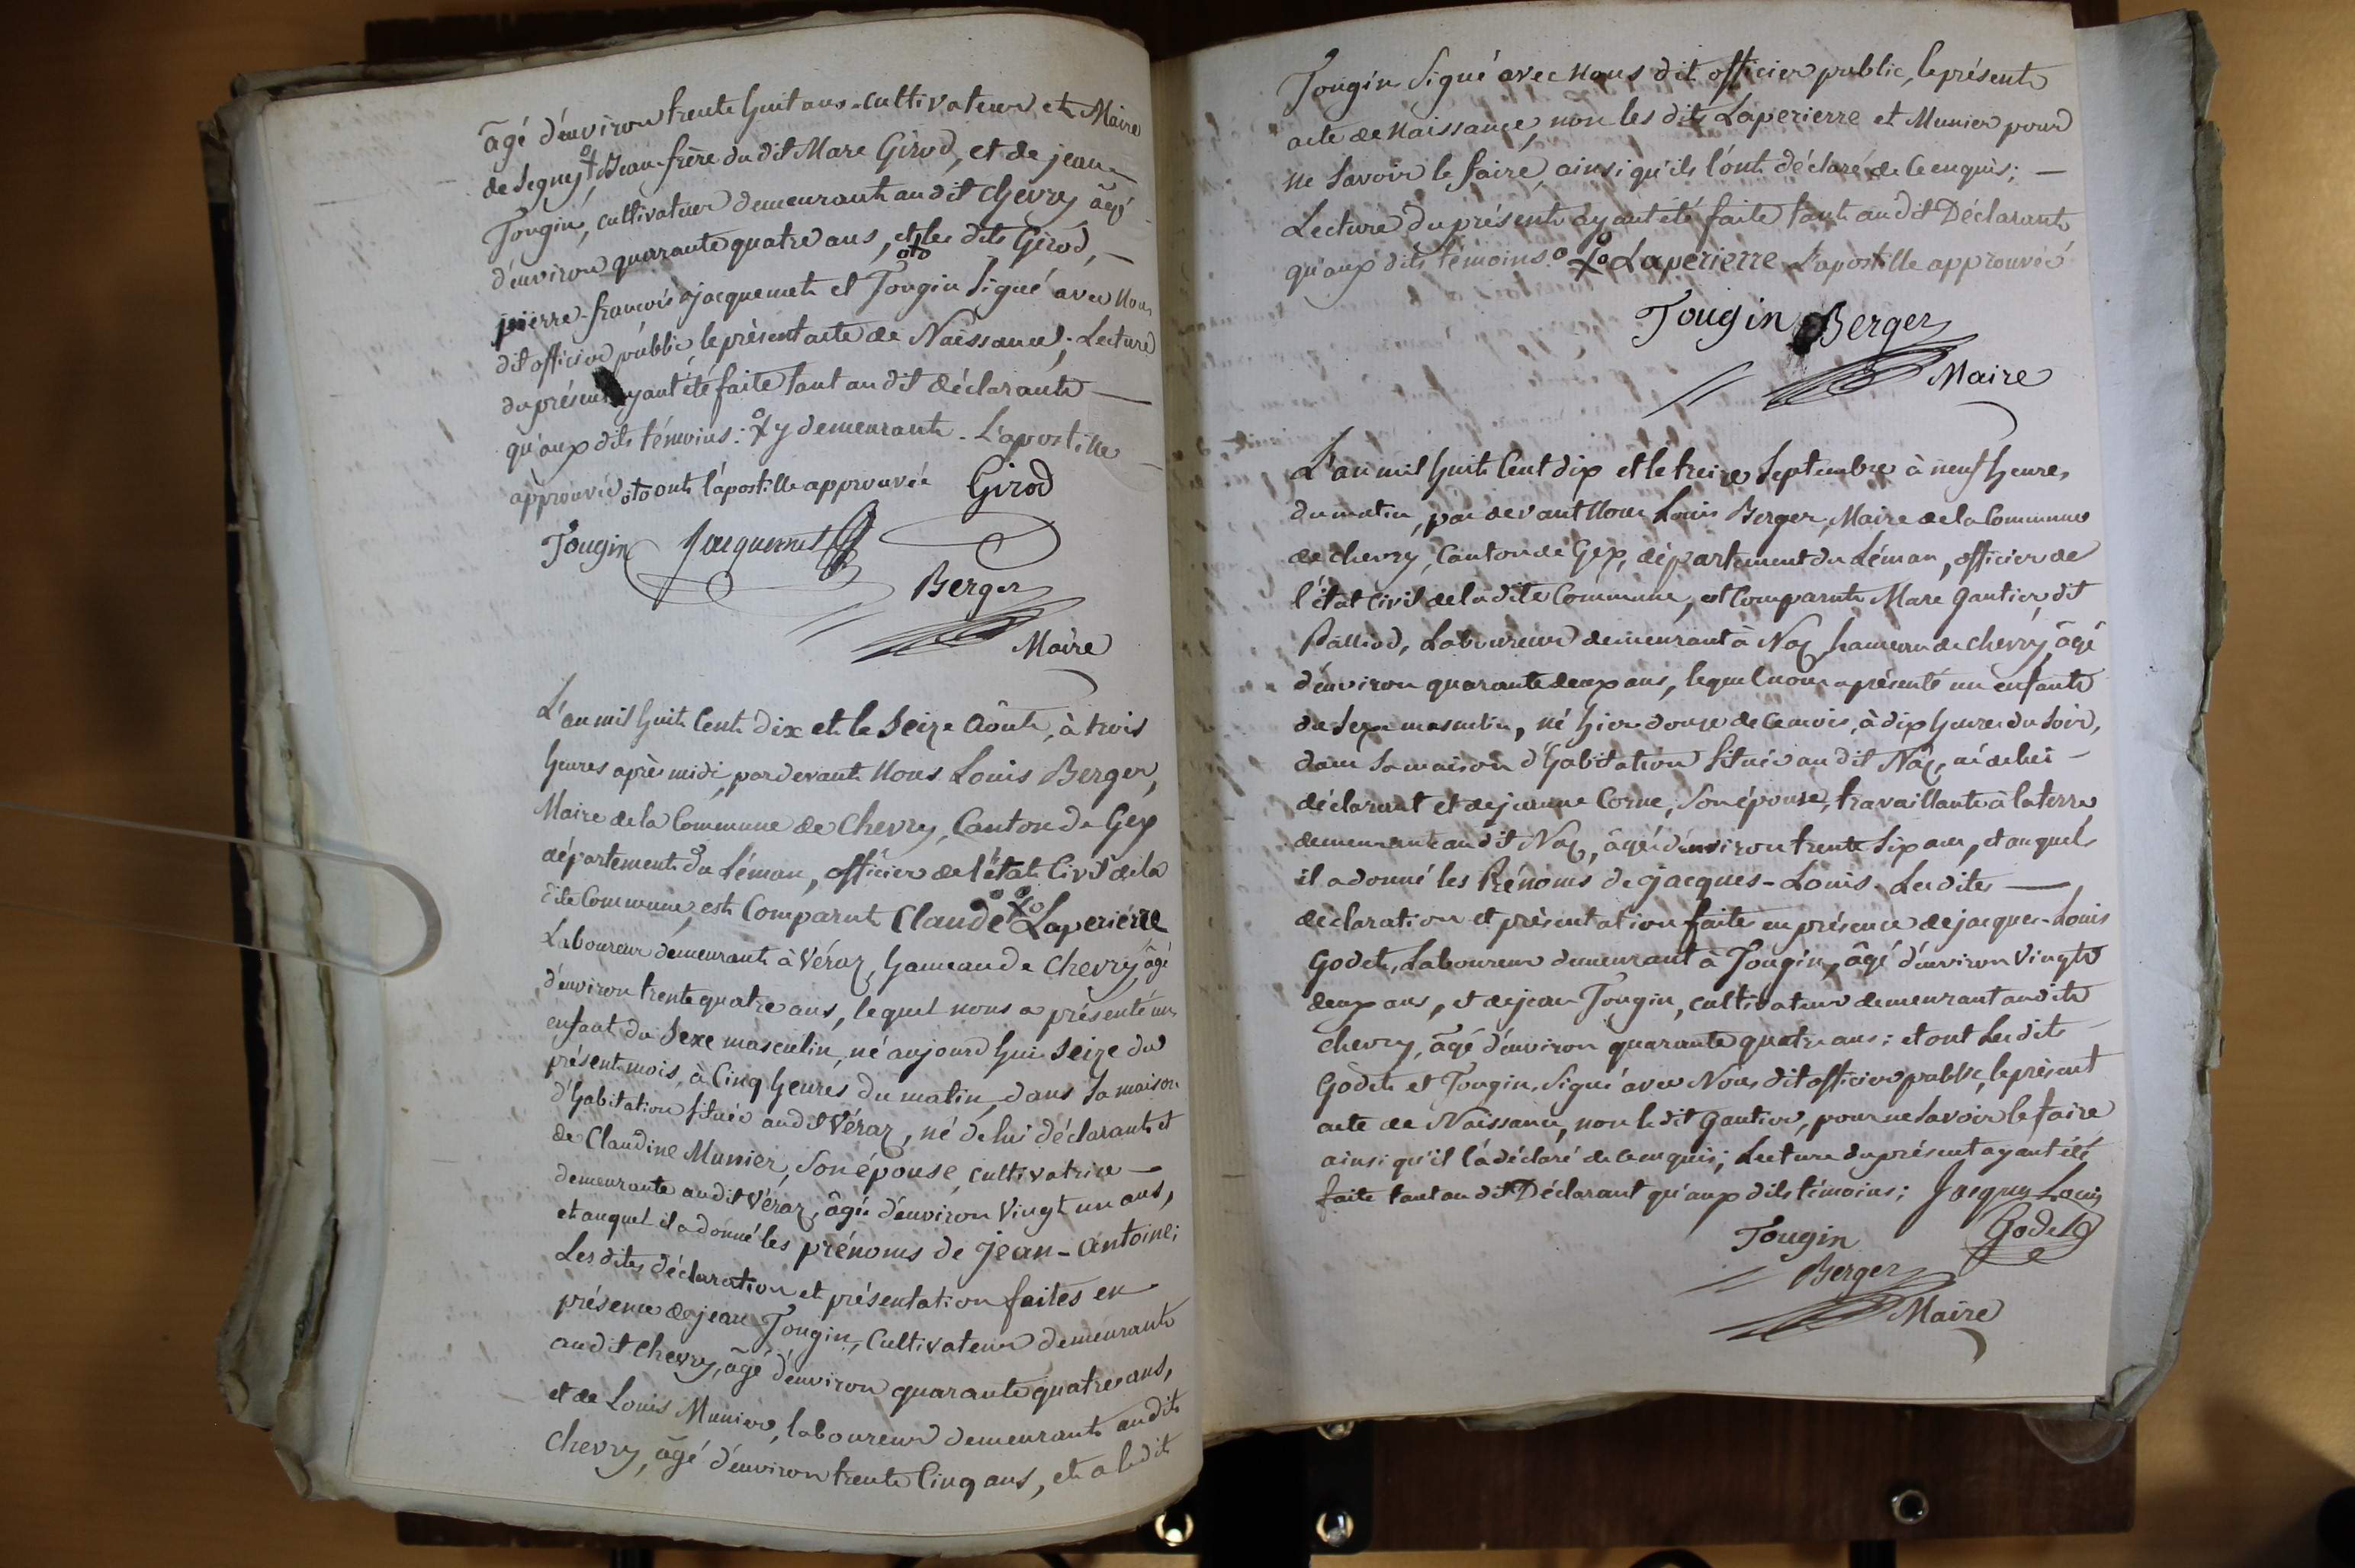 âgé d'environ trente huit ans cultivateur et Maire
de Segny, Beau-frère du dit Marc Girod, et de jean
Tougin, cultivateur demeurant au dit chevry âgé
d'environ quarante quatre ans, et les dits Girod,
pierre-francois jacquemet et Tougin Signé avec Nous
dit officier public le présent acte de Naissance; Lecture
du présent ayant été faite tant au dit déclarant
qu'aux dits témoins: y demeurant. L'apostille
approuvée ont l'apostille approuvée Girod
Tougin Jacquemet
Berger
Maire
L'an mil huit Cent dix et le Seize Août, à trois
heures après midi, pardevant Nous Louis Berger,
Maire de la Commune de Chevry, Canton de Gex
département du Léman, officier de l'état Civil de la
dite Commune, est Comparut Claude Laperierre
Laboureur demeurant à Véraz, hameau de Chevry, âgé
d'environ trente quatre ans, lequel nous a présenté un
enfant du Sexe masculin, né aujourd'hui Seize du
présent mois, à Cinq heures du matin, dans Sa maison
d'habitation située audit Véraz, né de lui déclarant et
de Claudine Munier, Son épouse, cultivatrice
demeurante audit Véraz, âgée d'environ Vingt un ans,
et auquel il a donné les prénoms de Jean-Antoine;
Les dites déclaration et présentation faites en
présence de jean Tougin, Cultivateur demeurant
audit Chevry, âgé d'environ quarante quatre ans,
et de Louis Munier, laboureur demeurant audit
Chevry, âgé d'environ trente Cinq ans, et a ledit
Tougin Signé avec Nous dit officier public, le présent
acte de Naissance, non les dits Laperierre et Munier pour
ne Savoir le faire, ainsi qu'ils l'ont déclaré de Ce enquis;
Lecture du présent ayant été faite tant au dit Déclarant
qu'aux dits témoins. Laperierre L'apostille approuvée
Tougin Berger
Maire
L'an mil huit Cent dix et le treize Septembre à neuf heures
du matin, par devant Nous Louis Berger, Maire de la Commune
de chevry, Canton de Gex, département du Léman, officier de
l'état Civil de la dite Commune, est Comparut Marc Gautier dit
Palliod, Laboureur demeurant à Naz, hameau de chevry, âgé
d'environ quarante deux ans, lequel nous a présenté un enfant
du Sexe masculin, né hier douze de Ce mois, à dix heures du Soir,
dans Sa maison d'habitation Située au dit Naz, né de lui
déclarant et de jeanne Corne, Son épouse, travaillante à la terre
demeurante audit Naz, âgée d'environ trente Six ans, et auquel
il a donné les Prénoms de Jacques-Louis. Les dites
déclaration et présentation faite en présence de jacques-Louis
Godet, Laboureur demeurant à Tougin, âgé d'environ Vingt
deux ans, et de jean Tougin, cultivateur demeurant audit
chevry, âgé d'environ quarante quatre ans; et ont Les dits
Godet et Tougin Signé avec Nous dit officier public, le présent
acte de Naissance, non le dit Gautier, pour ne Savoir le faire
ainsi qu'il l'a déclaré de Ce enquis; Lecture du présent ayant été
faite tant au dit Déclarant qu'aux dits témoins; Jacques Louis
Tougin Godet
Berger
Maire